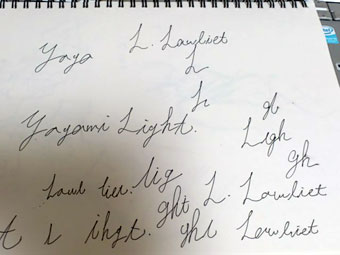 Yaya L. Lawliet
L
L
Yayami Light. gh
Ligh
gh
Lawl liet lig
ght L. Lawliet
t i ihgt. ght Lawliet